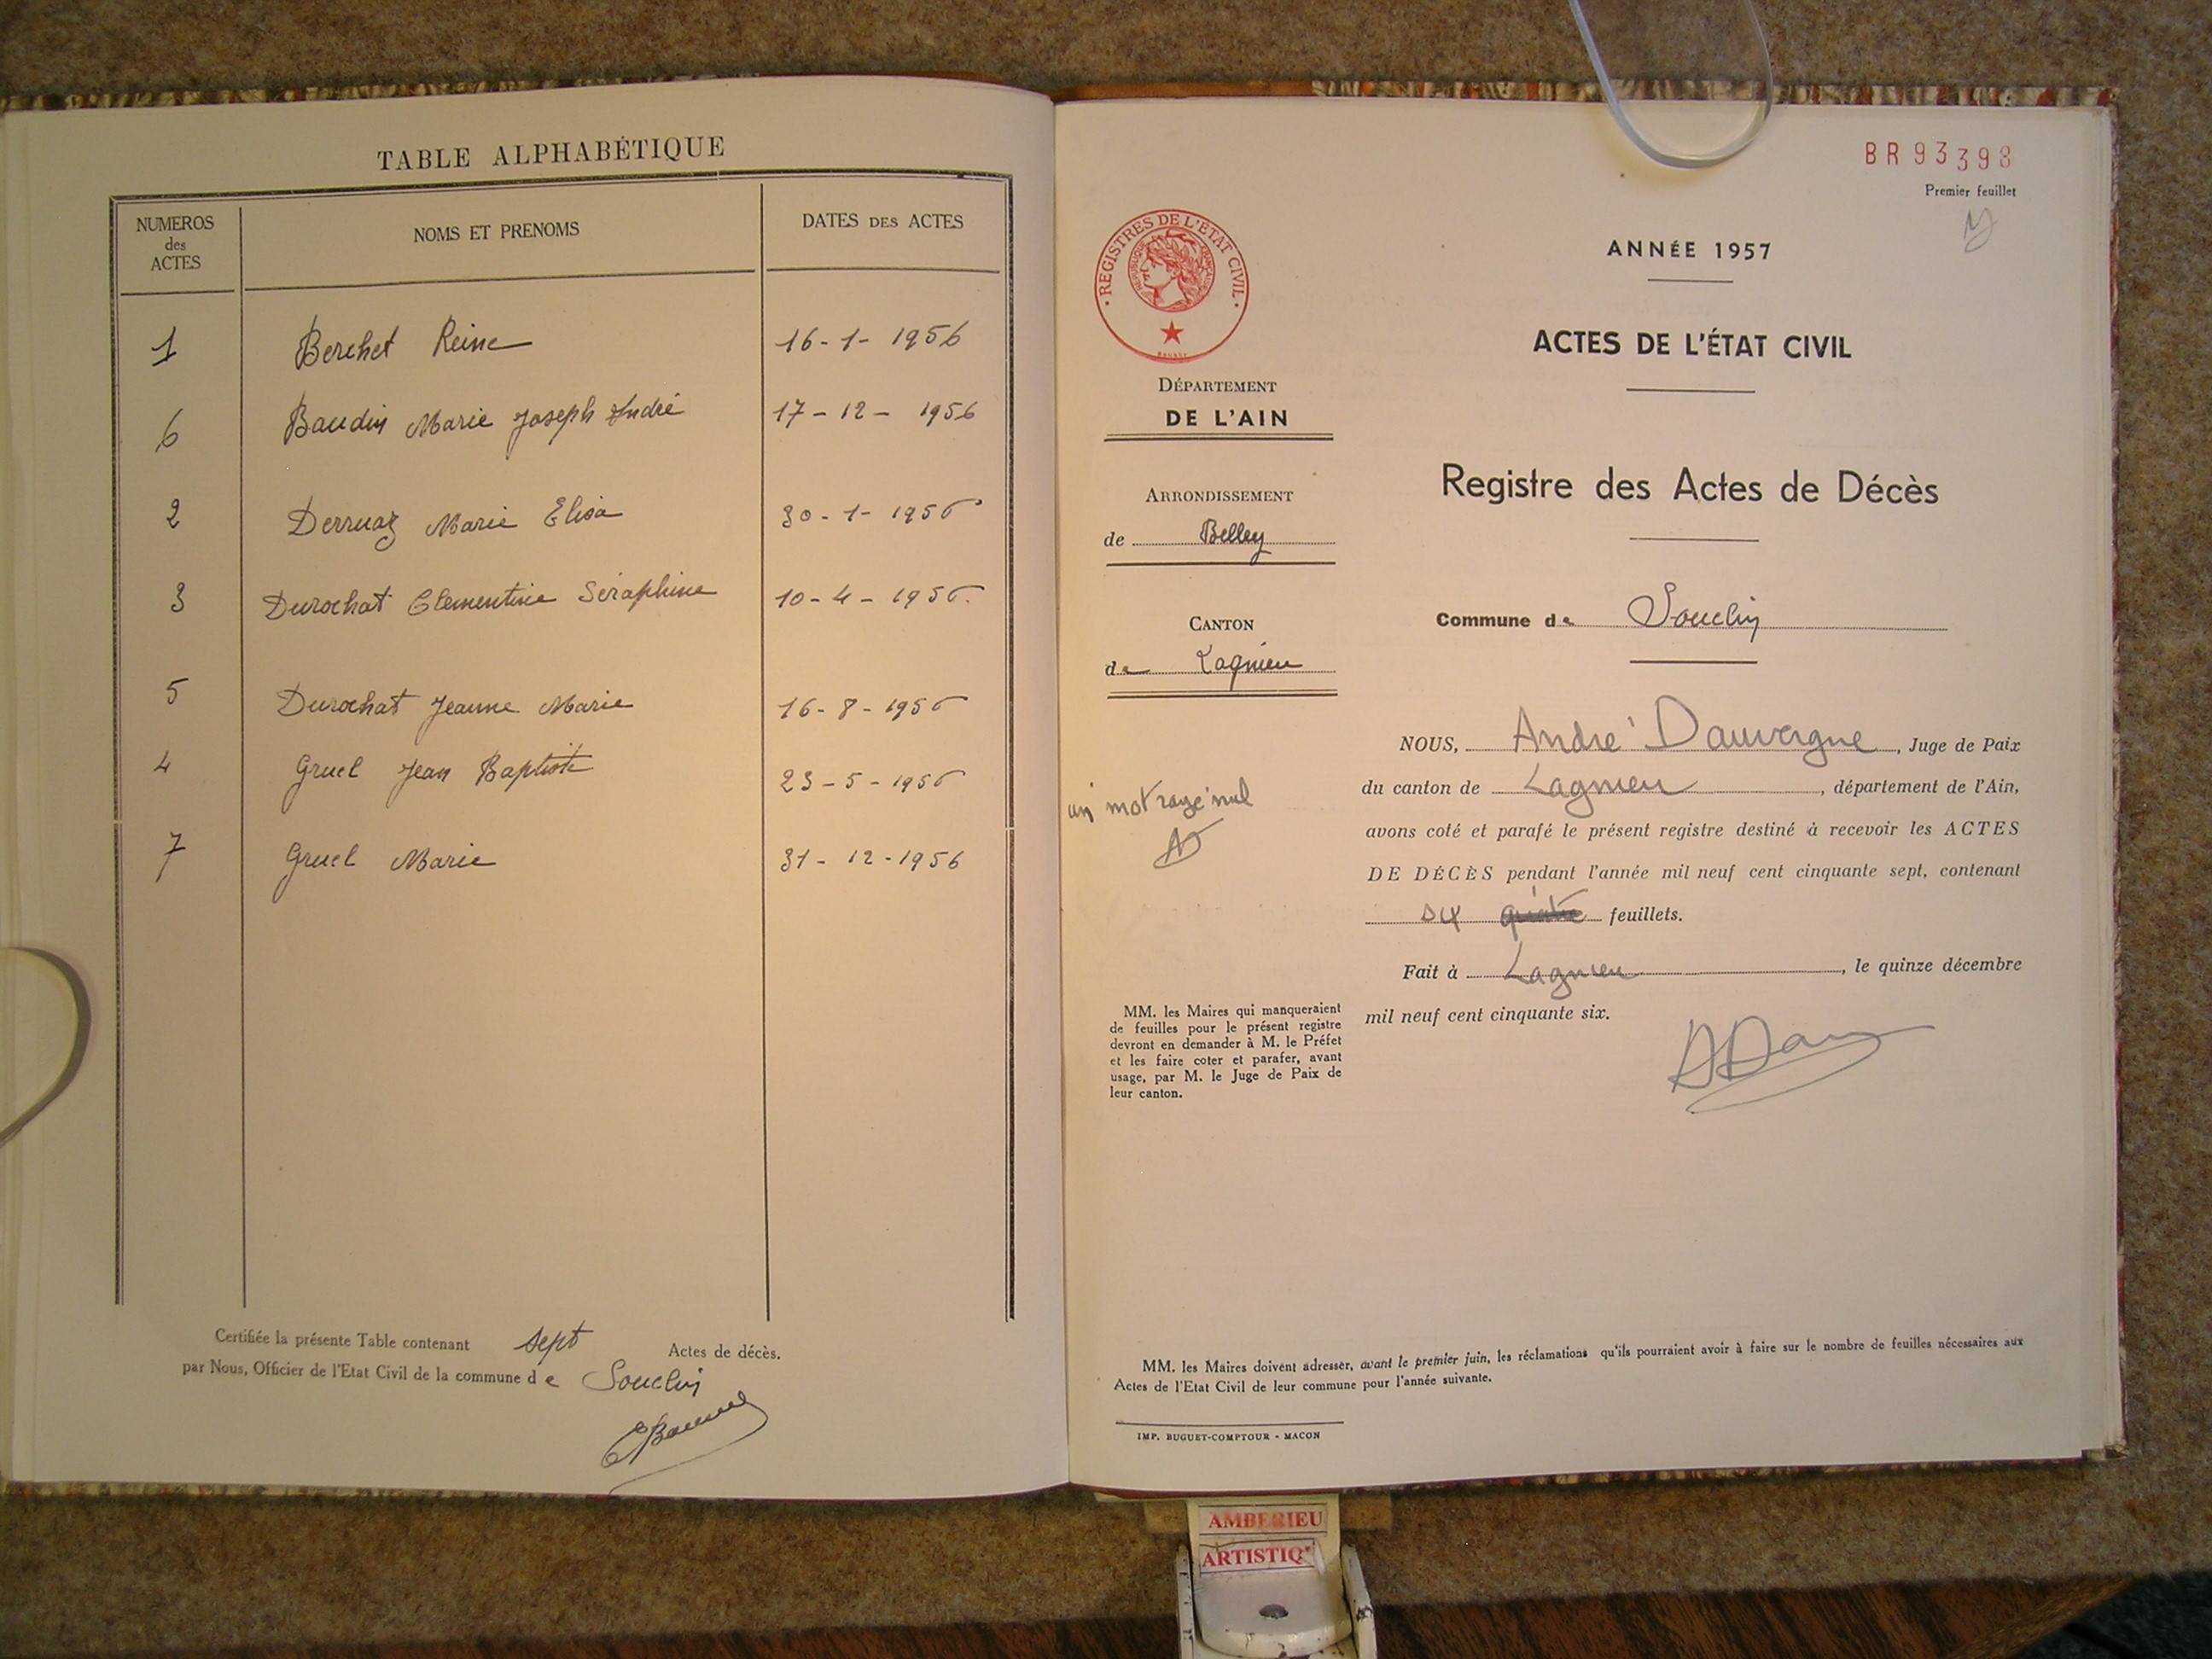 TABLE ALPHABÉTIQUE
NUMEROS des ACTES NOMS ET PRENOMS DATES DES ACTES
1 Berchet Reine 16-1-1956
6 Baudin Marie Joseph André 17-12-1956
2 Derruaz Marie Elisa 30-1-1956
3 Durochat Clementine Séraphine 10-4-1956.
5 Durochat Jeanne Marie 16-8-1956
4 Gruel Jean Baptiste 23-5-1956
7 Gruel Marie 31-12-1956
Certifiée la présente Table contenant sept Actes de décès.
par Nous, Officier de l'Etat Civil de la commune de Souclin
BR93398
Premier feuillet
REGISTRES DE L'ETAT CIVIL
REPUBLIQUE FRANÇAISE
ANNÉE 1957
ACTES DE L'ÉTAT CIVIL
DÉPARTEMENT
DE L'AIN
Registre des Actes de Décès
ARRONDISSEMENT
de Belley
Commune de Souclin
CANTON
de Lagnieu
NOUS, André Dauvergne, Juge de Paix
du canton de Lagnieu, département de l'Ain,
avons coté et parafé le présent registre destiné à recevoir les ACTES
DE DÉCÈS pendant l'année mil neuf cent cinquante sept, contenant
six quatre feuillets.
un mot rayé nul
Fait à Lagnieu, le quinze décembre
mil neuf cent cinquante six.
MM. les Maires qui manqueraient
de feuilles pour le présent registre
devront en demander à M. le Préfet
et les faire coter et parafer, avant
usage, par M. le Juge de Paix de
leur canton.
MM. les Maires doivent adresser, avant le premier juin, les réclamations qu'ils pourraient avoir à faire sur le nombre de feuilles nécessaires aux
Actes de l'Etat Civil de leur commune pour l'année suivante.
IMP. BUGUET-COMPTOUR - MACON
AMBERIEU
ARTISTIQ